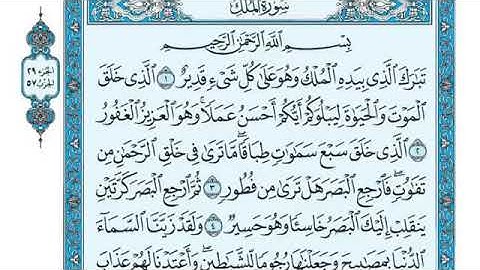 سُورَةُ المُلْكِ
بِسْمِ اللَّهِ الرَّحْمَٰنِ الرَّحِيمِ
الجزء ٢٩
الحزب ٥٧
تَبَارَكَ الَّذِي بِيَدِهِ الْمُلْكُ وَهُوَ عَلَىٰ كُلِّ شَيْءٍ قَدِيرٌ ١ الَّذِي خَلَقَ
الْمَوْتَ وَالْحَيَوٰةَ لِيَبْلُوَكُمْ أَيُّكُمْ أَحْسَنُ عَمَلًا ۚ وَهُوَ الْعَزِيزُ الْغَفُورُ
٢ الَّذِي خَلَقَ سَبْعَ سَمَٰوَٰتٍ طِبَاقًا ۖ مَّا تَرَىٰ فِي خَلْقِ الرَّحْمَٰنِ مِن
تَفَٰوُتٍ ۖ فَارْجِعِ الْبَصَرَ هَلْ تَرَىٰ مِن فُطُورٍ ٣ ثُمَّ ارْجِعِ الْبَصَرَ كَرَّتَيْنِ
يَنقَلِبْ إِلَيْكَ الْبَصَرُ خَاسِئًا وَهُوَ حَسِيرٌ ٤ وَلَقَدْ زَيَّنَّا السَّمَاءَ
الدُّنْيَا بِمَصَٰبِيحَ وَجَعَلْنَٰهَا رُجُومًا لِّلشَّيَٰطِينِ ۖ وَأَعْتَدْنَا لَهُمْ عَذَابَ